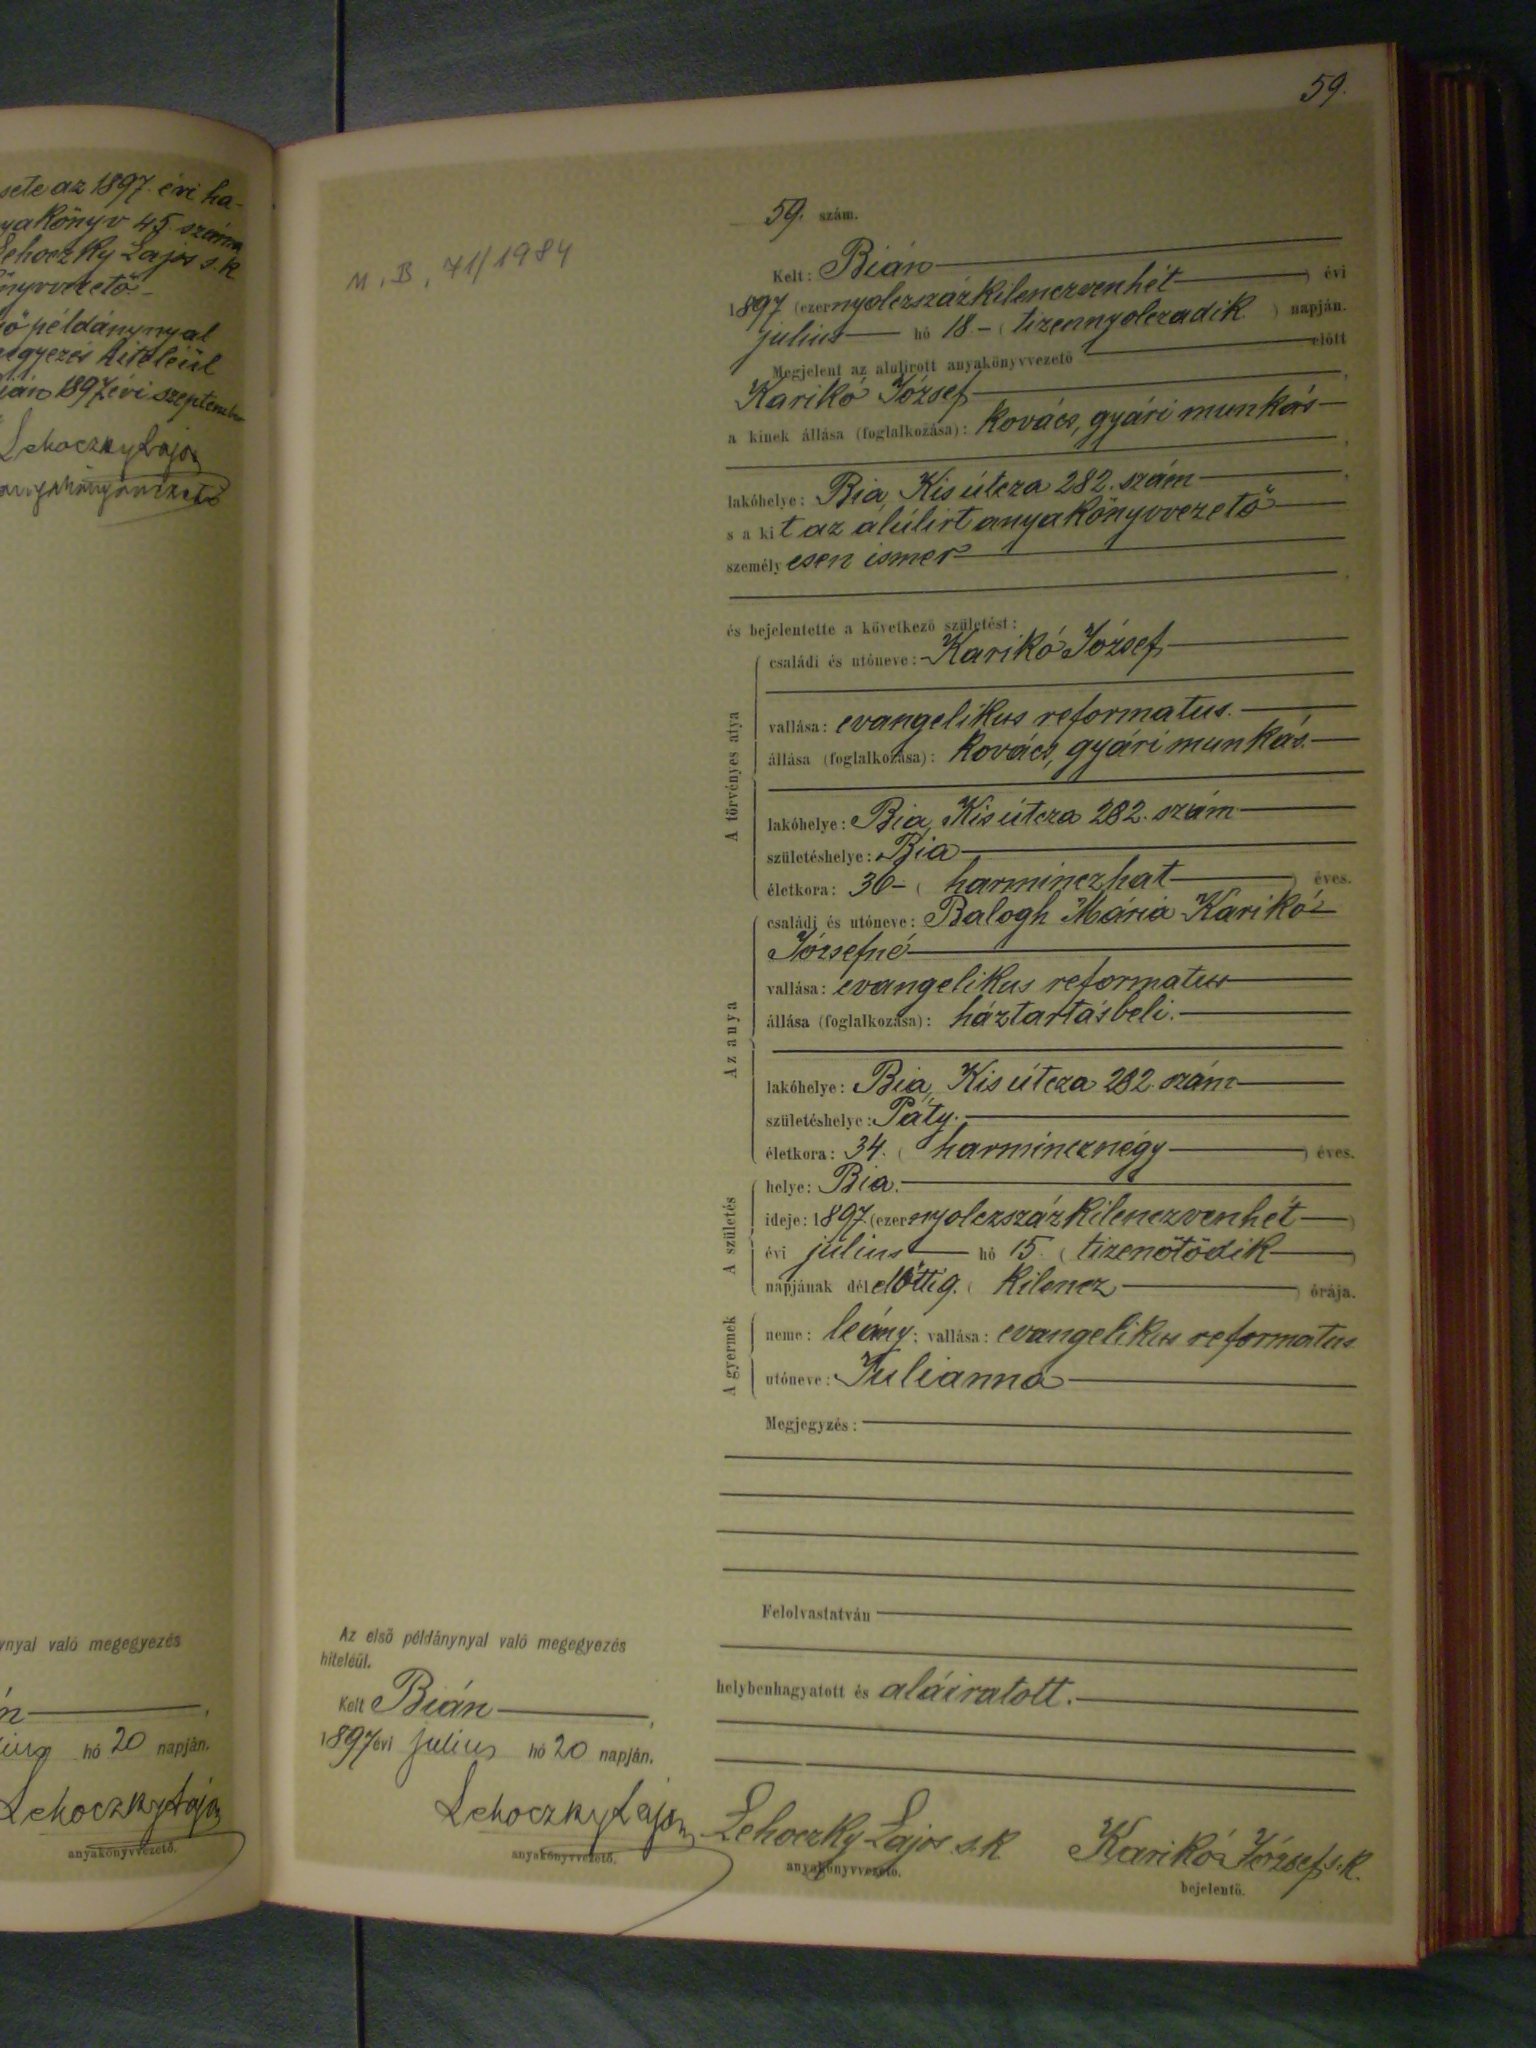 sete az 1897. évi ha-
yakönyv 45. száma
Lehoczky Lajos s. k
önyvvezető. -
ső példánynyal
egyezés hiteléül
ián 1897 évi szeptember
Lehoczky Lajos
anyakönyvvezető
ynyal való megegyezés
n
július hó 20 napján.
Lehoczky Lajos
anyakönyvvezető.
59.
M. B. 71/1984
59. szám.
Kelt: Bián
1897 (ezernyolczszázkilenczvenhét) évi
julius hó 18 - (tizennyolczadik) napján.
Megjelent az alulirott anyakönyvvezető előtt
Karikó József,
a kinek állása (foglalkozása): kovács, gyári munkás
,
lakóhelye: Bia, Kis útcza 282. szám,
s a kit az alúlirt anyakönyvvezető
személyesen ismer
,
és bejelentette a következő születést:
A törvényes atya
családi és utóneve: Karikó József
vallása: evangelikus reformatus.
állása (foglalkozása): kovács, gyári munkás.
lakóhelye: Bia, Kis útcza 282. szám
születéshelye: Bia
életkora: 36 - (harminczhat) éves.
Az anya
családi és utóneve: Balogh Mária Karikó
Józsefné
vallása: evangelikus reformatus
állása (foglalkozása): háztartásbeli.
lakóhelye: Bia, Kis útcza 282. szám
születéshelye: Páty.
életkora: 34. (harmincznégy) éves.
A születés
helye: Bia.
ideje: 1897. (ezernyolczszázkilenczvenhét)
évi július hó 15. (tizenötödik)
napjának délelőtti 9. (kilencz) órája.
A gyermek
neme: leány; vallása: evangelikus reformatus
utóneve: Julianna
Megjegyzés:
Felolvastatván
helybenhagyatott és aláiratott.
Az első példánynyal való megegyezés
hiteléül.
Kelt Bián,
1897 évi július hó 20 napján.
Lehoczky Lajos
anyakönyvvezető.
Lehoczky Lajos s. k
anyakönyvvezető.
Karikó József s. k.
bejelentő.